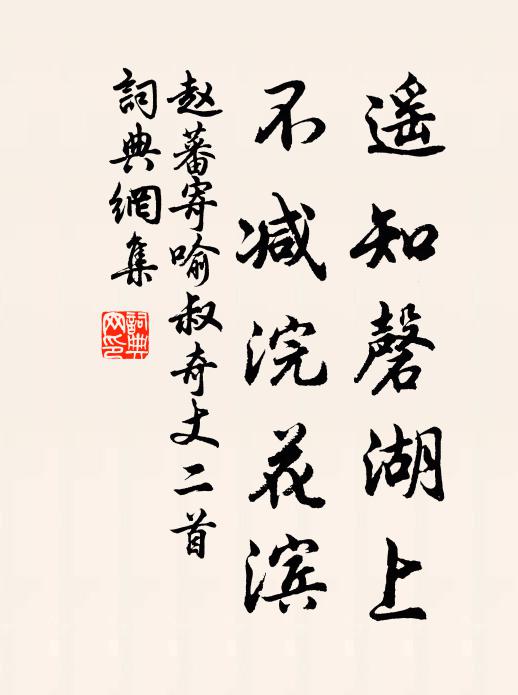 遥知磬湖上
不减浣花滨
赵蕃寄喻叔奇丈二首
詞典網集
詞典
网印